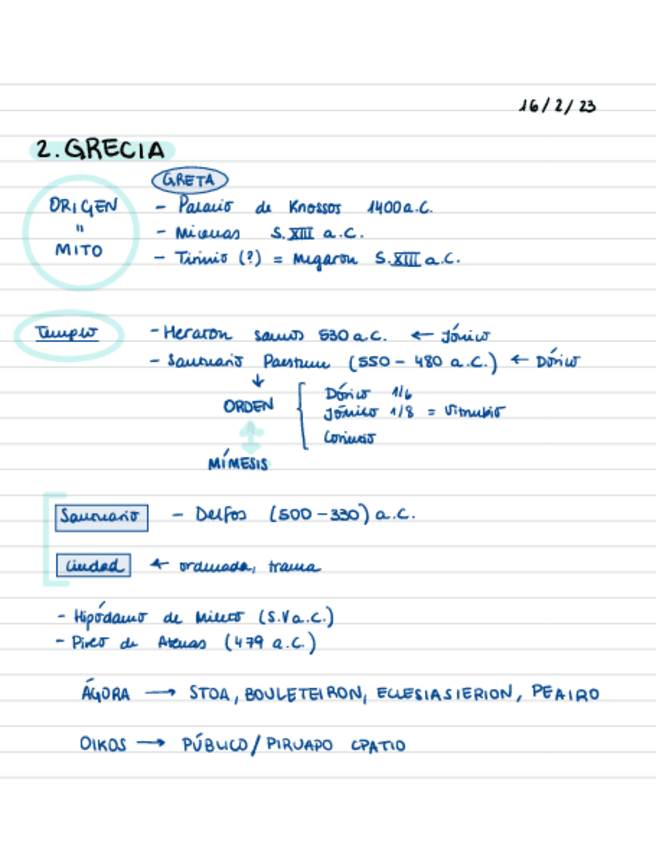 16/2/23
2. GRECIA
GRETA
ORIGEN
"
MITO
- Palacio de Knossos 1400 a.C.
- Micenas S. XIII a.C.
- Tirinio (?) = Megaron S. XIII a.C.
Templo
- Heraion samos 530 a.C. ← Jónico
- Santuario Paestum (550 - 480 a.C.) ← Dórico
↓
ORDEN
Dórico 1/6
Jónico 1/8 = Vitruvio
Corintio
MÍMESIS
Santuario - Delfos (500 - 330) a.C.
Ciudad ← ordenada, trama
- Hipódamo de Mileto (S.V a.C.)
- Pireo de Atenas (479 a.C.)
ÁGORA → STOA, BOULETEIRON, ECLESIASIERION, PEAIRO
OIKOS → PÚBLICO / PIRUAPO CPATIO